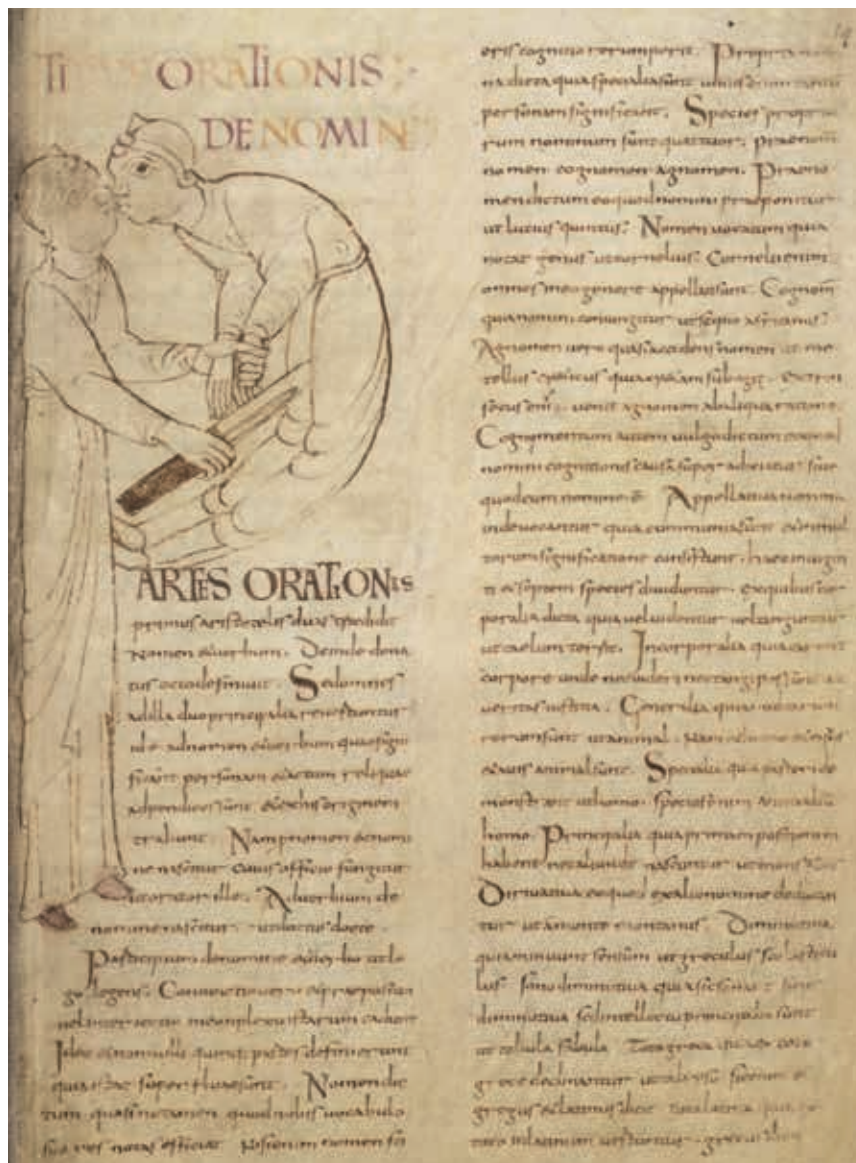 TI ORATIONIS
DE NOMIN
ARTES ORATIONIS
primus aristotelis duas tradidit
nomen & uerbum. Deinde dona
tus octo definiuit. Sed omnes
ad illa duo principalia reuertuntur
id ē ad nomen & uerbum quae signi
ficant personam & actum reliquae
adpendices sunt & ex his originem
trahunt. Nam pronomen a nomi
ne nascitur cuius officio fungitur
ut orator ille. Aduerbium de
nomine nascitur ut doctus docte.
Participium de nomine & uerbo ut le
go legens. Coniunctio uero & praepositio
uel interiectio in conplexu istarum cadunt
Ideo & nonnulli quinq; partes definierunt
quia istae superfluae sunt. Nomen dic
tum quasi notamen quod nobis uocabulo
suo res notas efficiat Nisi enim nomen sci
eris cognitio rerum perit. Propria
na dicta quia specialia sunt unius enim tantum
personam significant. Species propri
rum nominum sunt quattuor. praenom̄
nomen cognomen agnomen. Praeno
men dictum eo quod nomini praeponitur
ut lucius quintus. Nomen uocatum quia
notat genus ut cornelius. Cornelii enim
omnes in eo genere appellati sunt Cognom̄
quia nomini coniungitur ut scipio
Agnomen uero quasi accedens nomen ut me
tellus creticus quia cretam subegit. extrin
secus enī uenit agnomen ab aliqua ratione.
Cognomentum autem uulgo dictum eo quod
nomini cognitionis causa super adicitur siue
quod cum nomine ē Appellatiua nomina
inde uocantur quia communia sunt & in mul
torum significatione consistunt. haec in uigin
ti & septem species diuiduntur. ex quibus cor
poralia dicta quia uel uidentur uel tanguntur
ut caelum terra. Incorporalia quia carent
corpore unde nec uideri nec tangi possunt ut
ueritas iustitia. Generalia quia multarum
rerum sunt ut animal. Nam & homo & equus
& auis animal sunt. Specialia quia partem de
monstrant ut homo. species enim animalium
homo. Principalia quia primam positionem
habent nec aliunde nascuntur ut mons
Diriuatiua eo quod ex alio nomine deducan
tur ut a monte montanus. Diminutiua
quia minuunt sensum ut greculus scolasticu
lus sono diminutiua quia sic sonant
diminutiua sed intellectu principalia sunt
ut tabula fabula Tota greca
grece declinantur